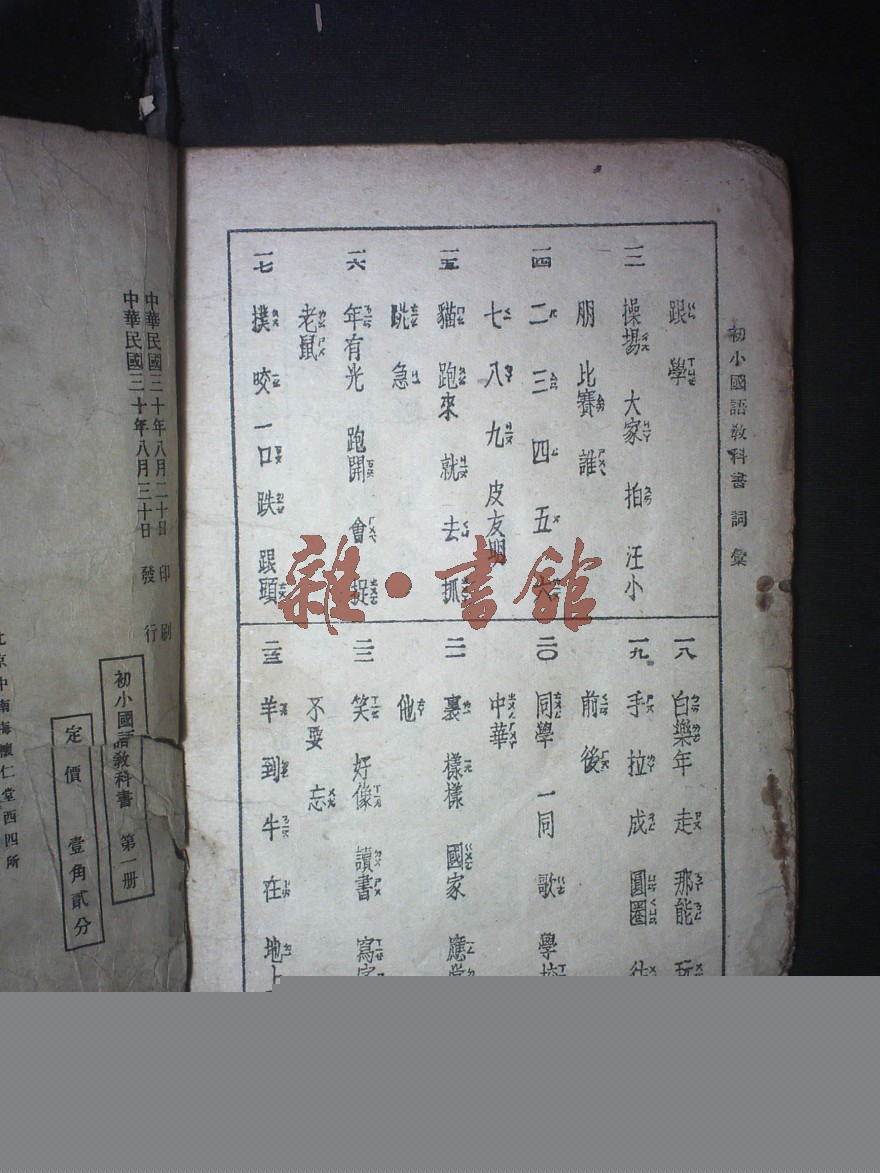 初小國語教科書 詞彙
跟 學
一三 操場 大家 拍 汪小
朋 比賽 誰
一四 二 三 四 五 六
七 八 九 皮友明
一五 貓 跑來 就 去 抓
跳 急
一六 年有光 跑開 會 捉
老鼠
一七 撲 咬 一口 跌 跟頭
一八 白樂年 走 那能 玩
一九 手 拉 成 圓圈
前 後
二〇 同學 一同 歌 學校
中華
二一 裏 樣樣 國家 應當
他
二二 笑 好像 讀書 寫字
不要 忘
二三 羊 到 牛 在 地上
中華民國三十年八月二十日 印刷
中華民國三十年八月三十日 發行
初小國語教科書 第一册
定價 壹角貳分
北京中南海懷仁堂西四所
雜·書館